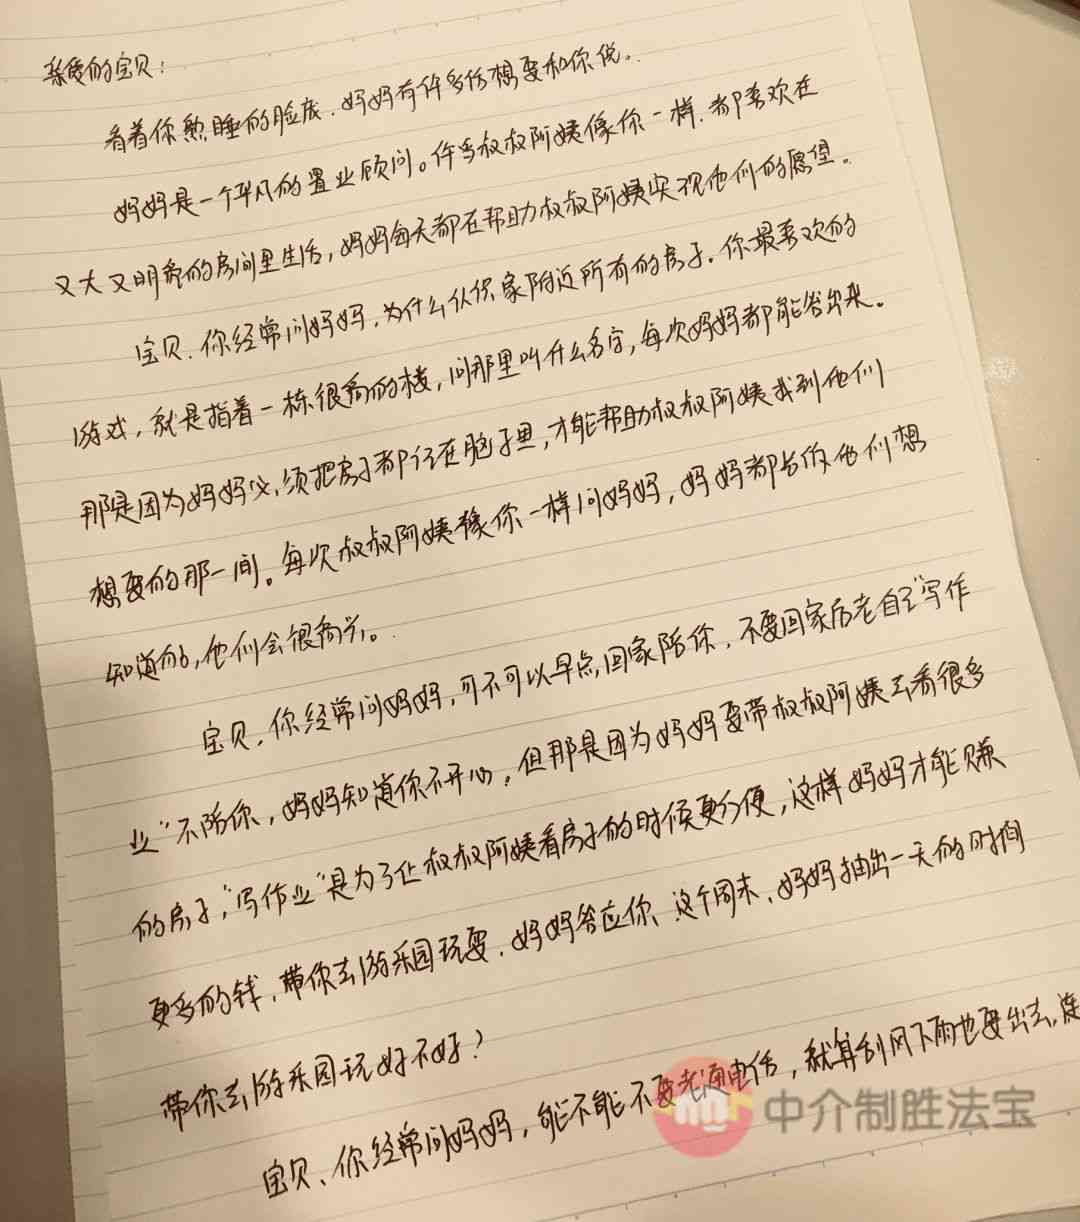 亲爱的宝贝:
看着你熟睡的脸庞,妈妈有许多话想要和你说。
妈妈是一个平凡的置业顾问。许多叔叔阿姨像你一样,都喜欢在
又大又明亮的房间里生活,妈妈每天都在帮助叔叔阿姨实现他们的愿望。
宝贝、你经常问妈妈,为什么认识家附近所有的房子。你最喜欢的
游戏,就是指着一栋很高的楼,问那里叫什么名字,每次妈妈都能答出来。
那是因为妈妈必须把房子都记在脑子里,才能帮助叔叔阿姨找到他们
想要的那一间。每次叔叔阿姨像你一样问妈妈,妈妈都告诉他们想
知道的,他们会很高兴。
宝贝,你经常问妈妈,可不可以早点回家陪你,不要回家后老自己"写作
业"不陪你,妈妈知道你不开心,但那是因为妈妈要带叔叔阿姨去看很多
的房子,"写作业"是为了让叔叔阿姨看房子的时候更方便,这样妈妈才能赚
更多的钱,带你去游乐园玩耍,妈妈答应你、这个周末、妈妈抽出一天的时间
带你去游乐园玩好不好?
宝贝、你经常问妈妈,能不能不要老通电话,就算刮风下雨也要出去,连
中介制胜法宝